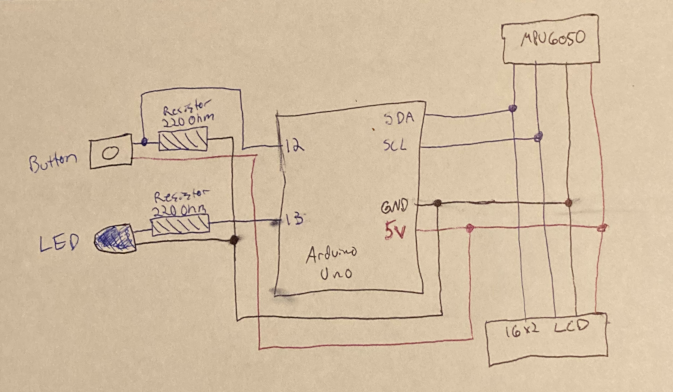 MPU6050
Resistor
220 Ohm
Button
12
SDA
SCL
Resistor
220 Ohm
LED
13
GND
5V
Arduino
Uno
16x2 LCD